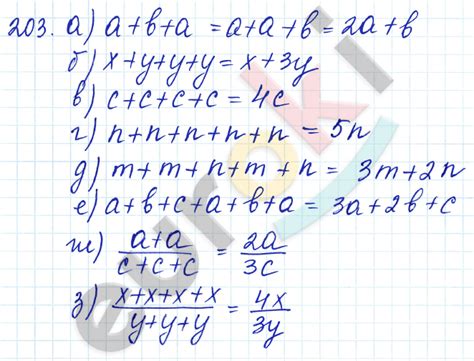 203. а) a+b+a = a+a+b = 2a+b
б) x+y+y+y = x+3y
в) c+c+c+c = 4c
г) n+n+n+n+n = 5n
д) m+m+n+m+n = 3m+2n
е) a+b+c+a+b+a = 3a+2b+c
ж) (a+a)/(c+c+c) = 2a/3c
з) (x+x+x+x)/(y+y+y) = 4x/3y
euroki